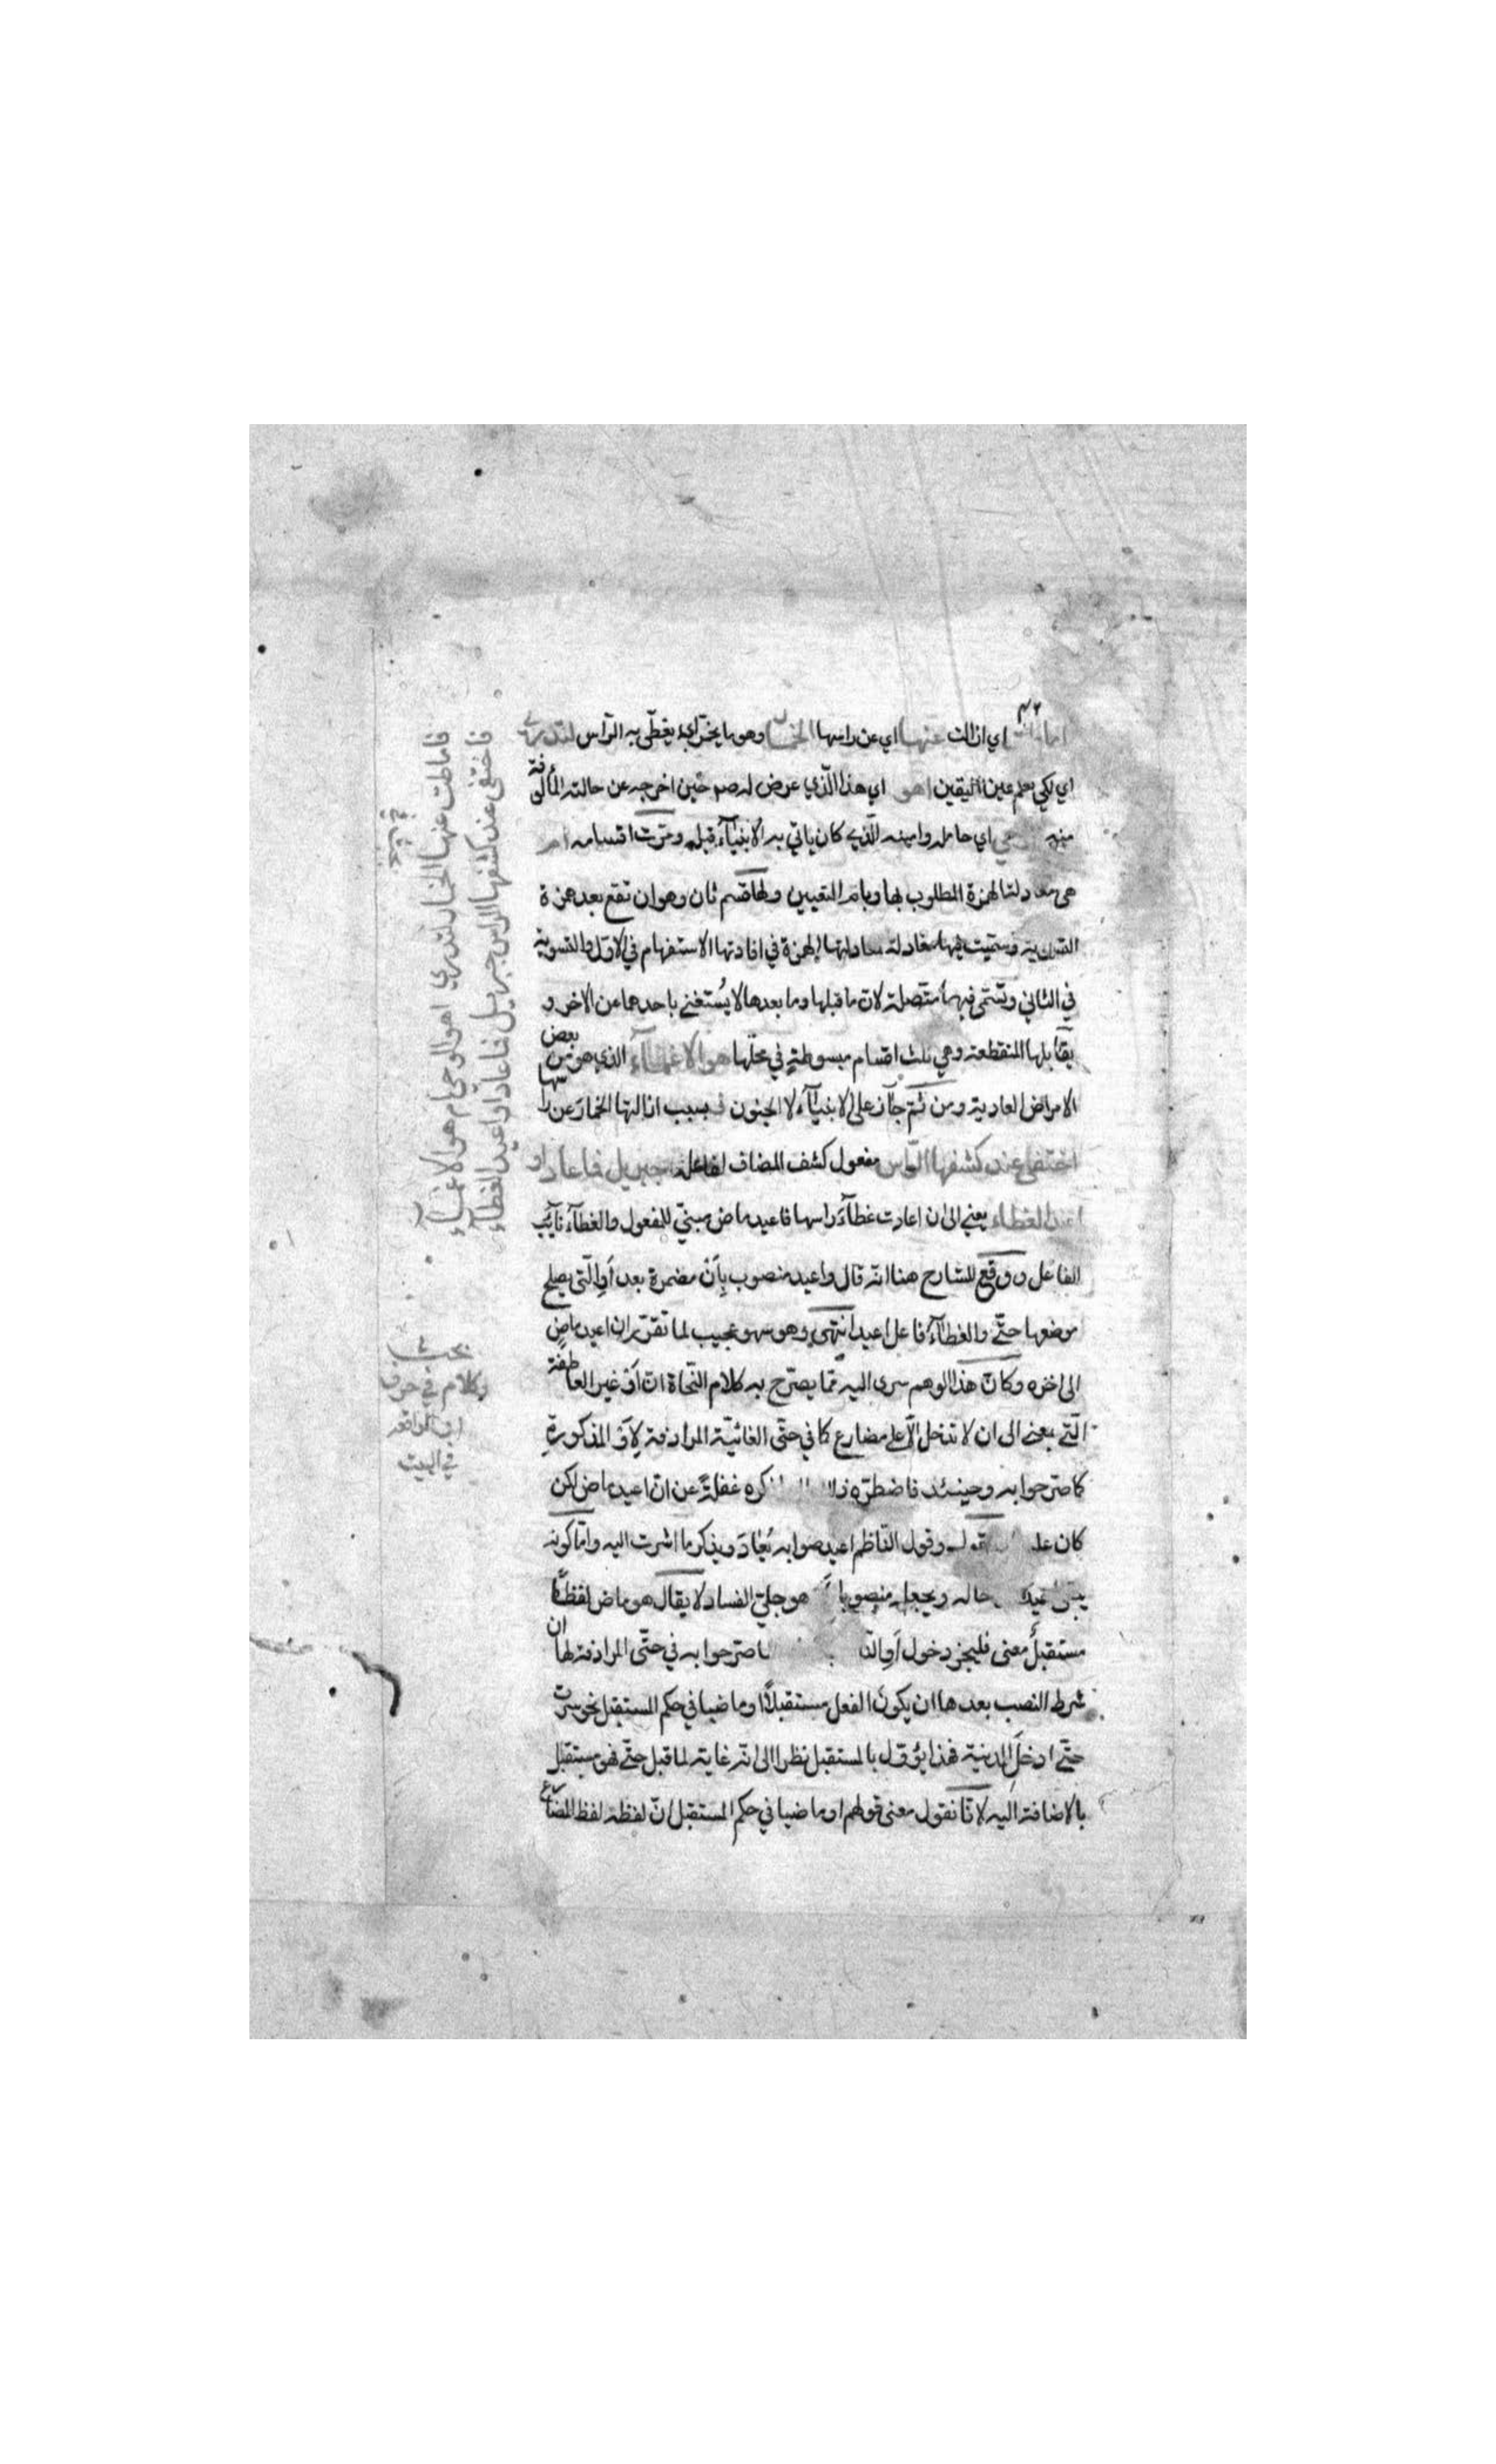 اي ازالت عنها اي عن راسها الخمار وهو ما يخمر اي يغطّى به الرّاس لتدري
اي لكي يعلم عين اليقين اهو اي هذا الّذي عرض له صم حين اخرجه عن حالته المألوفة
منه اي حامله وامينه الّذي كان ياتي به الانبيآء قبله ومرّت اقسامه ام
هي معادلتا لهمزة المطلوب بها وبام التعيين ولها قسم ثان وهو ان تقع بعد همزة
التسوية وسمّيت فيهما معادلة لمعادلتها الهمزة في افادتها الاستفهام في الاوّل والتسوية
في الثاني وتسمّى فيهما متّصلة لان ما قبلها وما بعدها لا يُستغنى باحدهما عن الاخر و
يقابلها المنقطعة وهي ثلث اقسام مبسوطة في محلّها هو الاغمآء الذي هو من بعض
الامراض العادية ومن ثمّ جآز على الانبيآء لا الجنون فبسبب ازالتها الخمار عن راسها
اختفى عند كشفها الرّاس مفعول كشف المضاف لفاعله جبريل فما عاد او
اعيد الغطاء يعني الى ان اعادت غطآء راسها فاعيد ماض مبنيّ للمفعول والغطآء نآيب
الفاعل ووقع للشارح هنا انّه قال واعيد منصوب بأن مضمرة بعد أو الّتي يصلح
موضعها حتّى والغطآء فاعل اعيد انتهى وهو سهو عجيب لما تقرّر ان اعيد ماض
الى اخره وكانّ هذا الوهم سرى اليه ممّا يصرّح به كلام النّحاة انّ أو غير العاطفة
الّتي بمعنى الى ان لا تدخل الّا على مضارع كما في حتّى الغائيّة المرادفة لأو المذكورة
كما صرّحوا به وحينئذ فاضطرّه ذلك ذكره غفلةً عن انّ اعيد ماض لكن
كان عليه يقول وقول النّاظم اعيد صوابه يُعاد ويذكر ما اشرت اليه وامّا كونه
يبقى اعيد حاله ويجعله منصوبا هو جليّ الفساد لا يقال هو ماض لفظًا
مستقبلٌ معنى فليجز دخول أو صرّحوا به في حتّى المرادفة لها ان
شرط النصب بعدها ان يكون الفعل مستقبلاً او ماضيا في حكم المستقبل نحو سرت
حتّى ادخل المدينة فهذا يؤوّل بالمستقبل نظرا الى انّه غاية لما قبل حتّى فهو مستقبل
بالاضافة اليه لانّا نقول معنى قولهم او ماضيا في حكم المستقبل انّ لفظه لفظ المضارع
فاماطت عنها الخمار لتدري اهو الوحي ام هو الاغمآء
فاختفى عند كشفها الراس جبريل فما عاد او اعيد الغطآء
الكلام في حرف
او الواقعة
في البيت